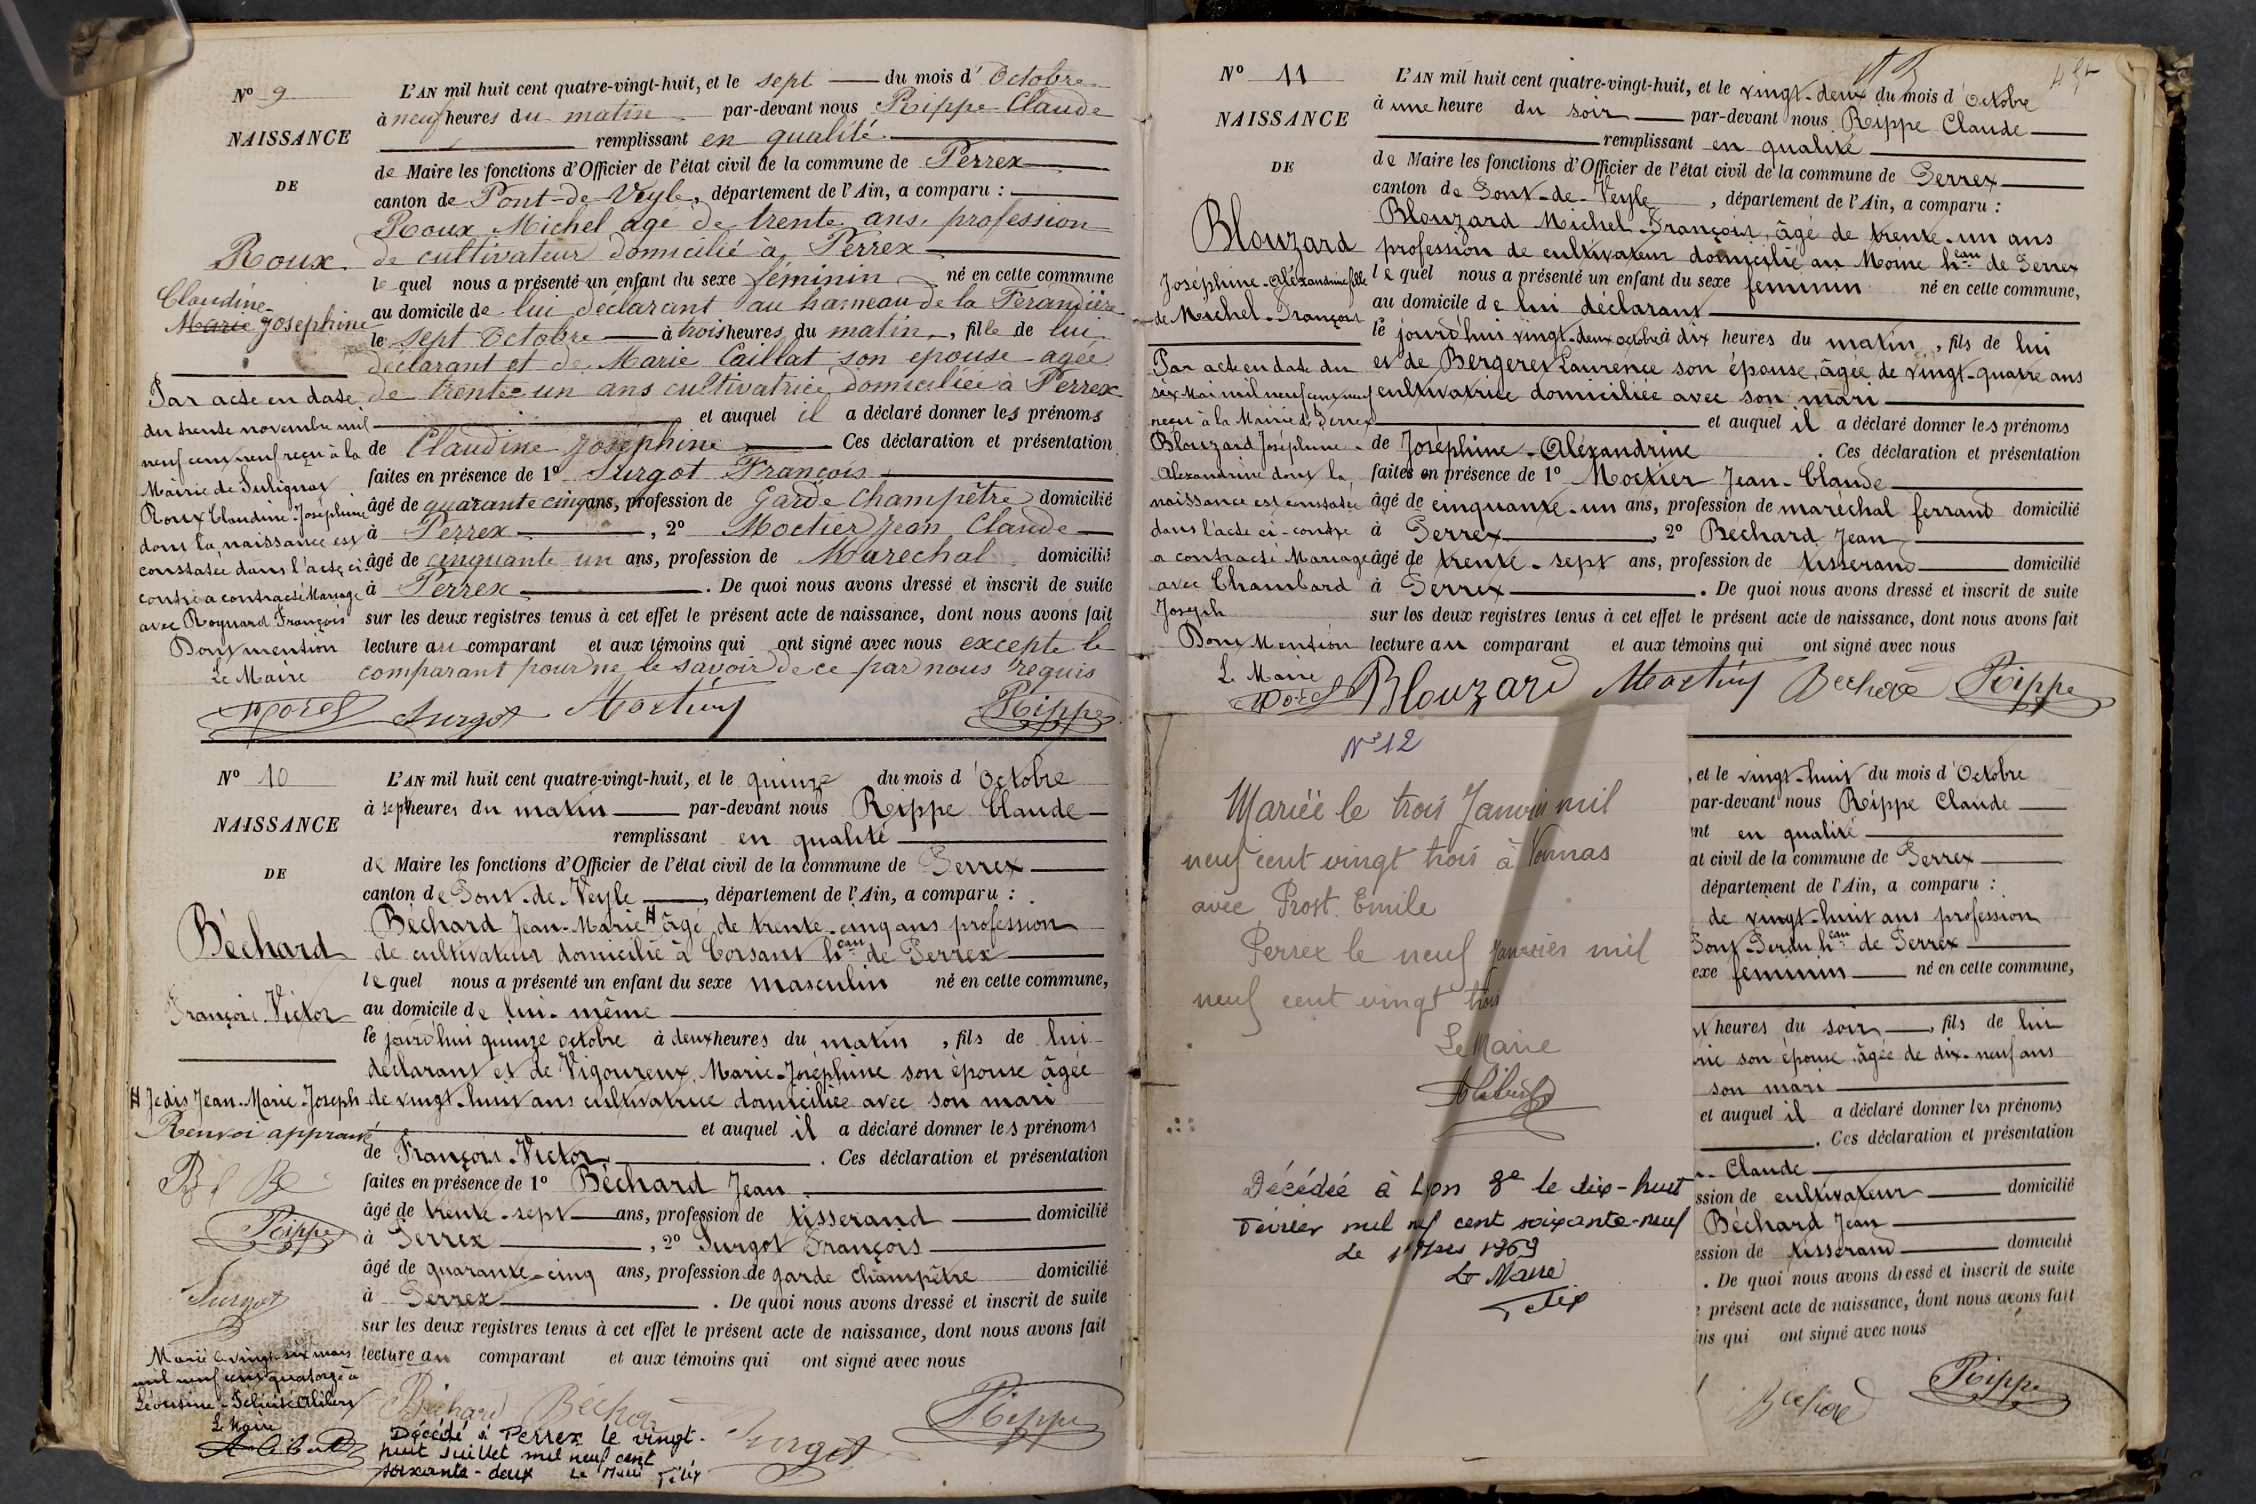 Nº 9
NAISSANCE
DE
Roux
Claudine
Marie Josephine
Par acte en date
du trente novembre mil
neuf cent neuf reçu à la
Mairie de Sulignat
Roux Claudine-Joséphine
dont la naissance est
constatée dans l'acte ci-
contre a contracté Mariage
avec Roynard François
Dont mention
Le Maire
Morel
L'AN mil huit cent quatre-vingt-huit, et le sept du mois d'Octobre
à neuf heures du matin par-devant nous Rippe Claude
remplissant en qualité
de Maire les fonctions d'Officier de l'état civil de la commune de Perrex
canton de Pont-de-Veyle, département de l'Ain, a comparu :
Roux Michel agé de trente ans, profession
de cultivateur domicilié à Perrex
le quel nous a présenté un enfant du sexe féminin né en cette commune
au domicile de lui déclarant au hameau de la Ferandière
le sept Octobre à trois heures du matin, fille de lui
déclarant et de Marie Caillat son epouse agée
de trente-un ans cultivatrice domiciliée à Perrex
et auquel il a déclaré donner les prénoms
de Claudine Joséphine Ces déclaration et présentation
faites en présence de 1º Surgot François
âgé de quarante cinq ans, profession de Garde champêtre domicilié
à Perrex, 2º Moctier Jean Claude
âgé de cinquante un ans, profession de Maréchal domicilié
à Perrex. De quoi nous avons dressé et inscrit de suite
sur les deux registres tenus à cet effet le présent acte de naissance, dont nous avons fait
lecture au comparant et aux témoins qui ont signé avec nous excepté le
comparant pour ne le savoir de ce par nous requis
Surgot Rippe
Nº 10
NAISSANCE
DE
Béchard
François-Victor
# Je dis Jean-Marie-Joseph
Renvoi approuvé
B J Be
Rippe
Surgot
Marié le vingt-six mars
mil neuf cent quatorze à
Léontine-Félicité
Le Maire
L'AN mil huit cent quatre-vingt-huit, et le quinze du mois d'Octobre
à sept heures du matin par-devant nous Rippe Claude
remplissant en qualité
de Maire les fonctions d'Officier de l'état civil de la commune de Perrex
canton de Pont-de-Veyle, département de l'Ain, a comparu :
Béchard Jean-Marie # âgé de trente-cinq ans profession
de cultivateur domicilié à Corsant heau de Perrex
le quel nous a présenté un enfant du sexe masculin né en cette commune,
au domicile de lui-même
le jourd'hui quinze octobre à deux heures du matin, fils de lui
déclarant et de Vigoureux Marie-Joséphine son épouse âgée
de vingt-huit ans cultivatrice domiciliée avec son mari
et auquel il a déclaré donner les prénoms
de François-Victor. Ces déclaration et présentation
faites en présence de 1º Béchard Jean
âgé de trente-sept ans, profession de tisserand domicilié
à Perrex, 2º Surgot François
âgé de quarante-cinq ans, profession de garde champêtre domicilié
à Perrex. De quoi nous avons dressé et inscrit de suite
sur les deux registres tenus à cet effet le présent acte de naissance, dont nous avons fait
lecture au comparant et aux témoins qui ont signé avec nous
Béchard Béchard Surgot Rippe
Décédé à Perrex le vingt-
huit Juillet mil neuf cent
soixante-deux Le Maire
Nº 11
NAISSANCE
DE
Blouzard
Joséphine-Aléxandrine fille
de Michel-François
Par acte en date du
six Mai mil neuf cent neuf
reçu à la Mairie de Perrex
Blouzard Joséphine-
Alexandrine dont la
naissance est constatée
dans l'acte ci-contre
a contracté Mariage
avec Chambard
Joseph
Dont Mention
Le Maire
Morel
L'AN mil huit cent quatre-vingt-huit, et le vingt-deux du mois d'Octobre
à une heure du soir par-devant nous Rippe Claude
remplissant en qualité
de Maire les fonctions d'Officier de l'état civil de la commune de Perrex
canton de Pont-de-Veyle, département de l'Ain, a comparu :
Blouzard Michel-François, âgé de trente-un ans
profession de cultivateur domicilié au Moine heau de Perrex
lequel nous a présenté un enfant du sexe feminin né en cette commune,
au domicile de lui déclarant
le jourd'hui vingt-deux octobre à dix heures du matin, fils de lui
et de Bergeret Laurence son épouse, âgée de vingt-quatre ans
cultivatrice domiciliée avec son mari
et auquel il a déclaré donner les prénoms
de Joséphine-Aléxandrine. Ces déclaration et présentation
faites en présence de 1º Moctier Jean-Claude
âgé de cinquante-un ans, profession de maréchal ferrant domicilié
à Perrex, 2º Béchard Jean
âgé de trente-sept ans, profession de tisserand domicilié
à Perrex. De quoi nous avons dressé et inscrit de suite
sur les deux registres tenus à cet effet le présent acte de naissance, dont nous avons fait
lecture au comparant et aux témoins qui ont signé avec nous
Blouzard Béchard Rippe
Nº 12
Mariée le trois Janvier mil
neuf cent vingt trois à Vonnas
avec Prost Emile
Perrex le neuf Janvier mil
neuf cent vingt trois
Le Maire
Décédée à Lyon 8e le dix-huit
Février mil neuf cent soixante-neuf
Le 1 Mars 1969
Le Maire
, et le vingt-huit du mois d'Octobre
par-devant nous Rippe Claude
nt en qualité
at civil de la commune de Perrex
département de l'Ain, a comparu :
de vingt-huit ans profession
Pont-Perdu heau de Perrex
exe feminin né en cette commune,
heures du soir, fils de lui
rie son épouse âgée de dix-neuf ans
son mari
et auquel il a déclaré donner les prénoms
. Ces déclaration et présentation
Claude
ssion de cultivateur domicilié
Béchard Jean
ession de tisserand domicilié
. De quoi nous avons dressé et inscrit de suite
e présent acte de naissance, dont nous avons fait
ins qui ont signé avec nous
Béchard Rippe